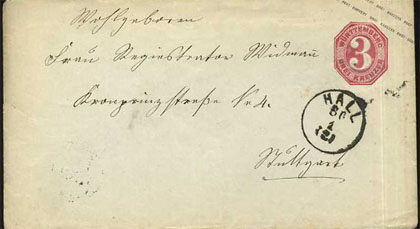 Wohlgeboren
Frau Registrator Widmann
Kronprinzstraße No 4.
Stuttgart
WÜRTTEMBERG
3
DREI KREUZER
HALL